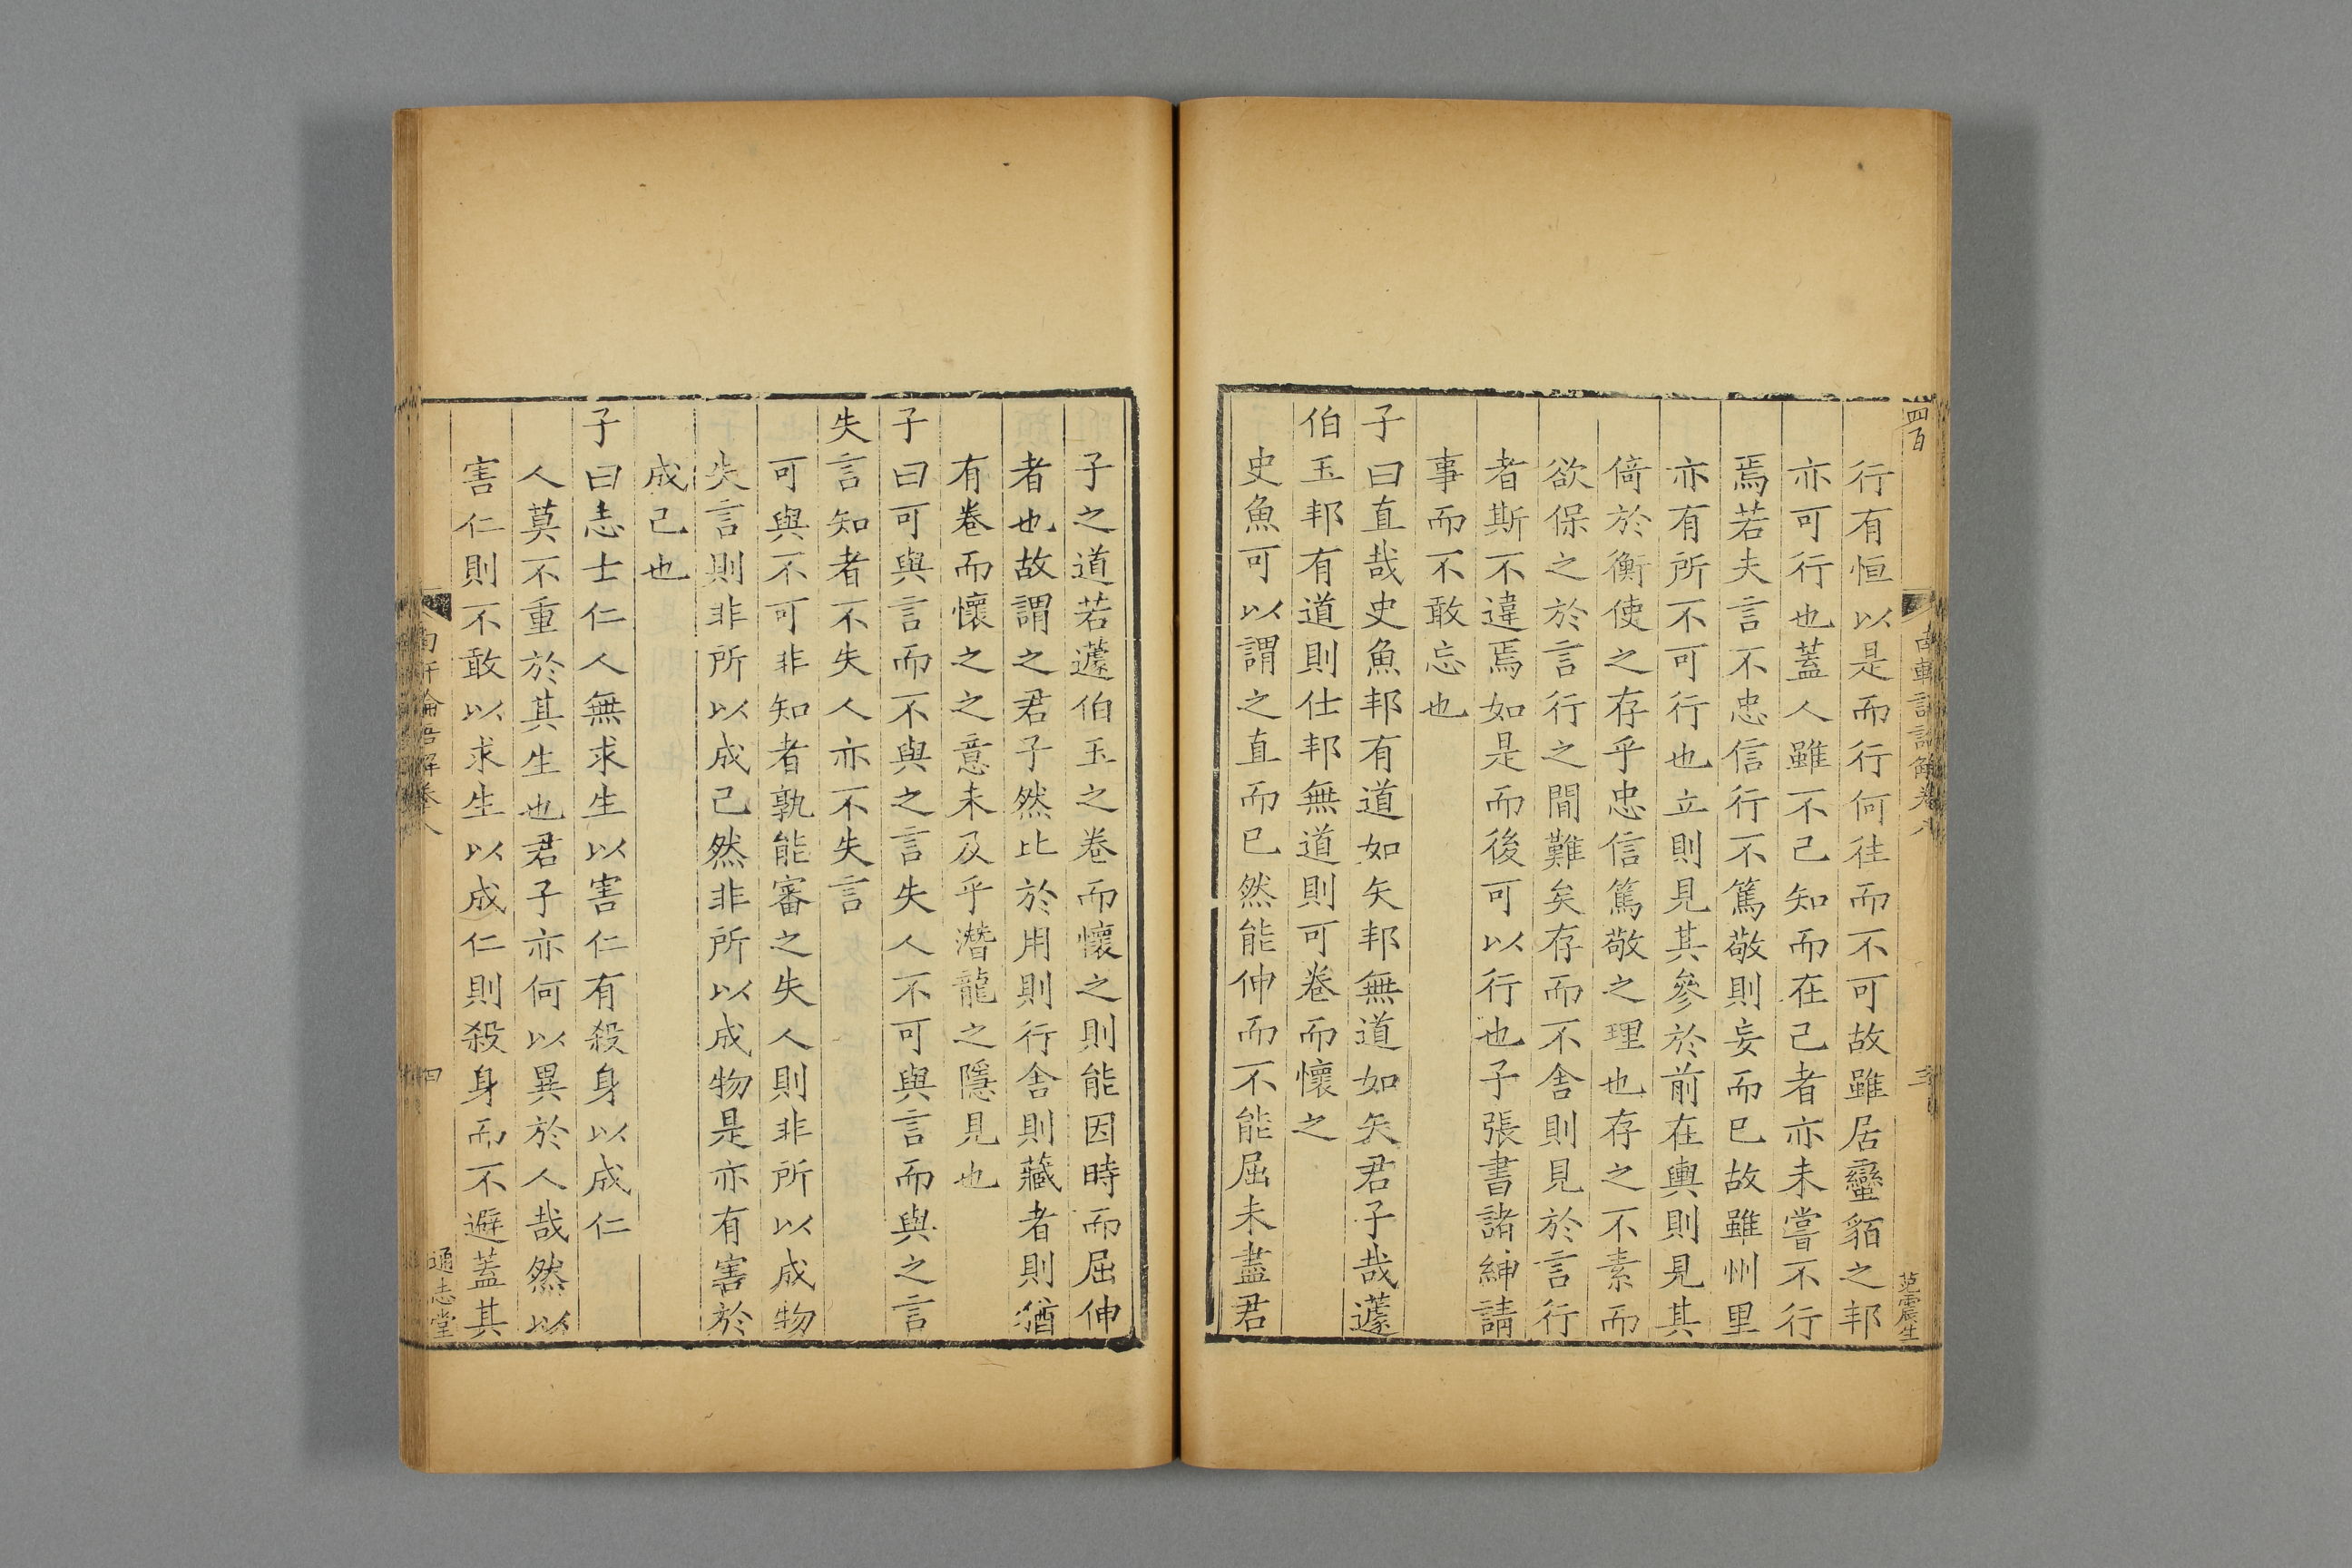 四百
行有恒以是而行何往而不可故雖居蠻貊之邦
亦可行也蓋人雖不己知而在己者亦未嘗不行
焉若夫言不忠信行不篤敬則妄而已故雖州里
亦有所不可行也立則見其參於前在輿則見其
倚於衡使之存乎忠信篤敬之理也存之不素而
欲保之於言行之間難矣存而不舍則見於言行
者斯不違焉如是而後可以行也子張書諸紳請
事而不敢忘也
子曰直哉史魚邦有道如矢邦無道如矢君子哉蘧
伯玉邦有道則仕邦無道則可卷而懷之
史魚可以謂之直而已然能伸而不能屈未盡君
三
范震生
子之道若蘧伯玉之卷而懷之則能因時而屈伸
者也故謂之君子然比於用則行舍則藏者則猶
有卷而懷之之意未及乎潛龍之隱見也
子曰可與言而不與之言失人不可與言而與之言
失言知者不失人亦不失言
可與不可非知者孰能審之失人則非所以成物
失言則非所以成己然非所以成物是亦有害於
成己也
子曰志士仁人無求生以害仁有殺身以成仁
人莫不重於其生也君子亦何以異於人哉然以
害仁則不敢以求生以成仁則殺身而不避蓋其
南軒論語解卷八
四
通志堂